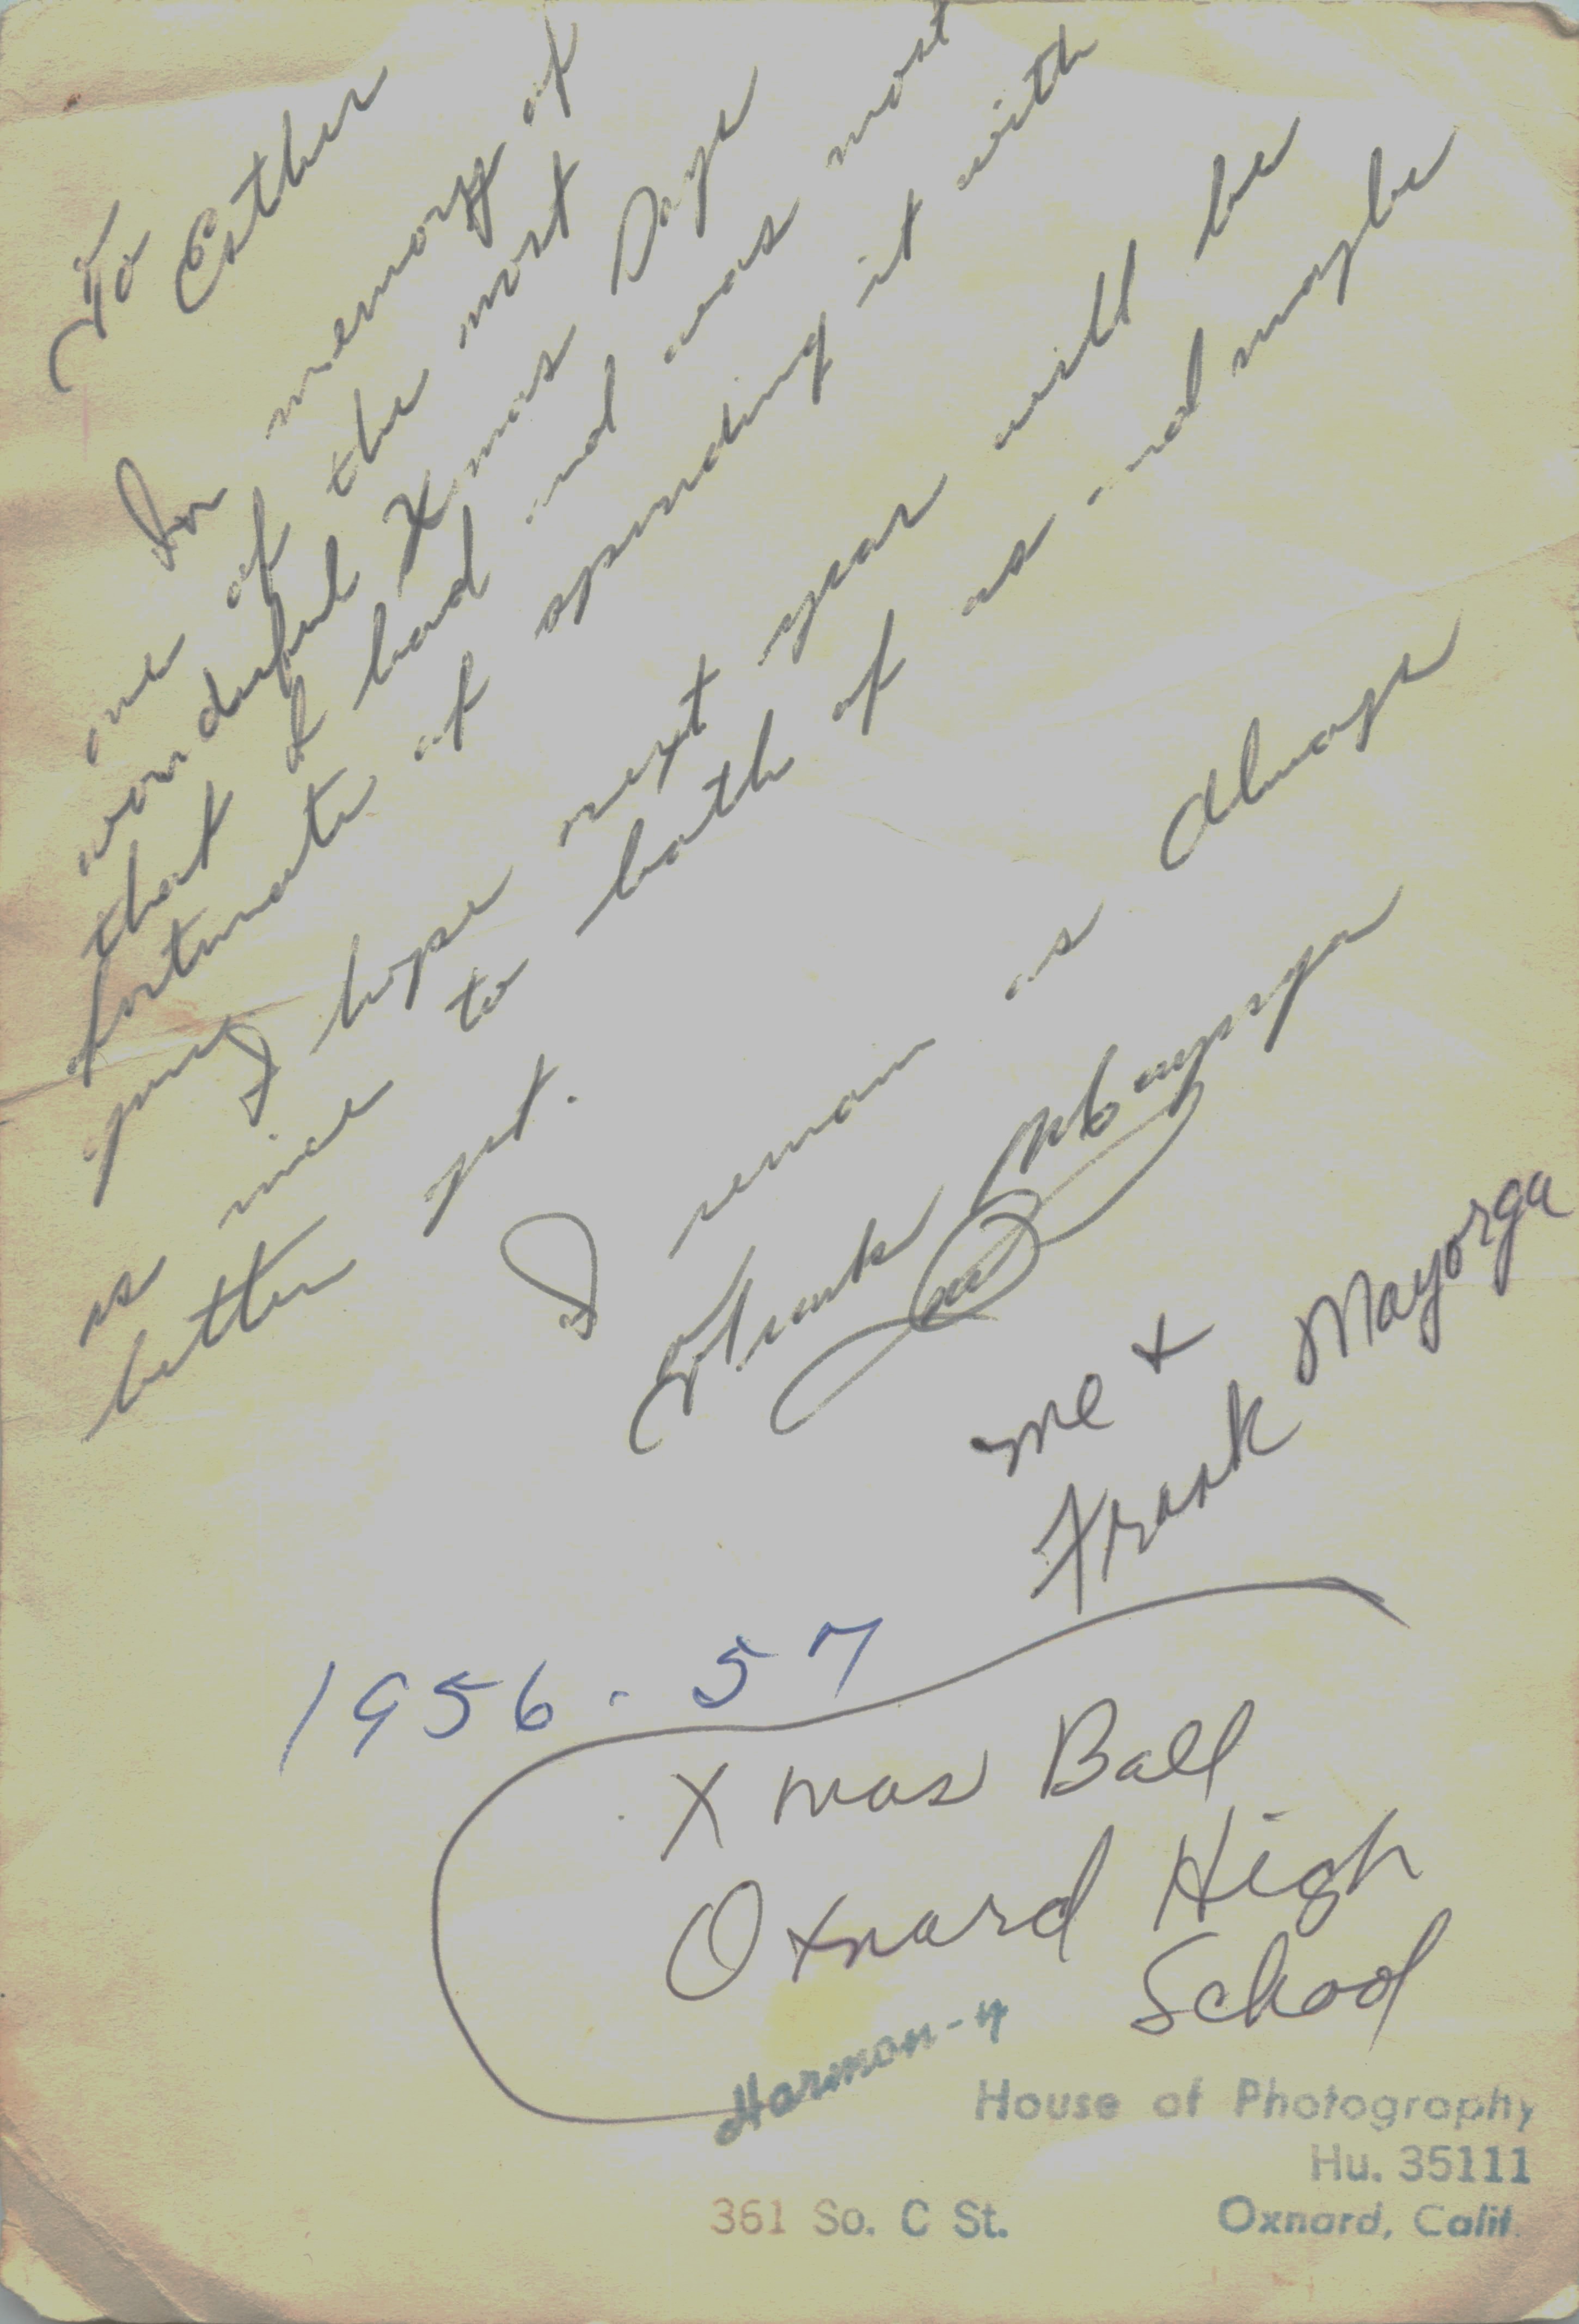 To Esther
In memory of
one of the most
wonderful Xmas Days
that I had and was most
fortunate of spending it with
you
I hope next year will be
as nice to both of us and maybe
better yet.
I remain as Always
Frank Mayorga
me +
Frank Mayorga
1956-57
Xmas Ball
Oxnard High
School
Harmon-y
House of Photography
Hu. 35111
361 So. C St. Oxnard, Calif.